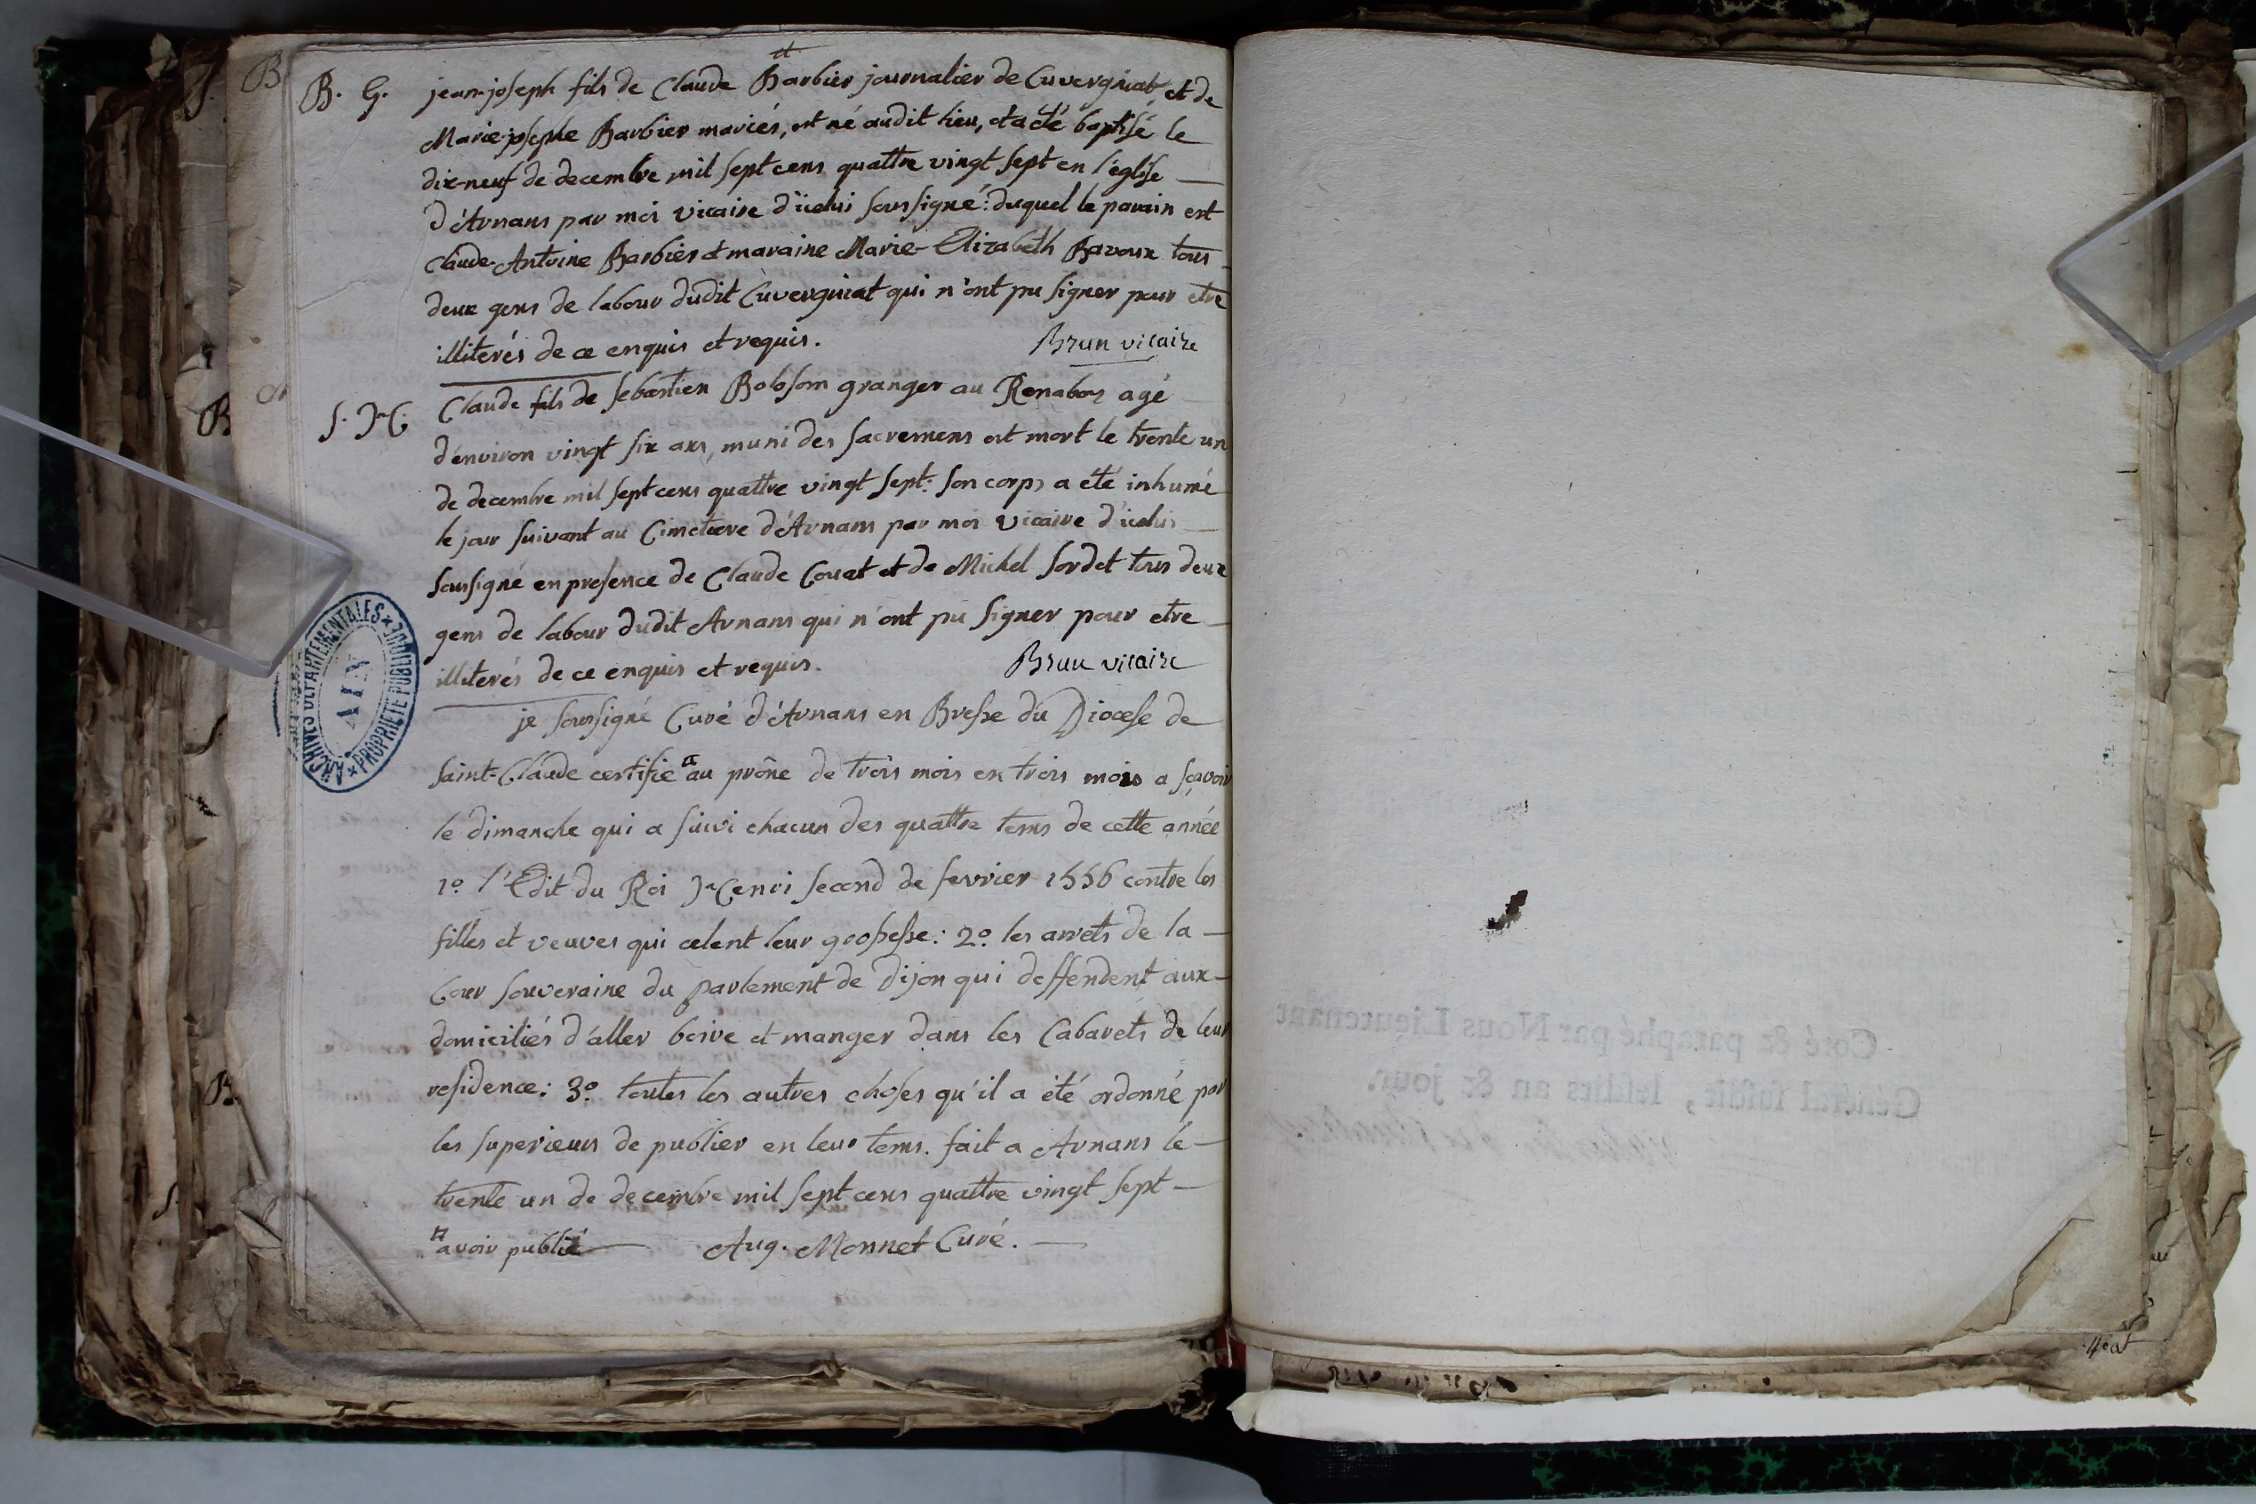 B. G. jean-joseph fils de Claude Barbier journalier de Cuvergniat et de
Marie-josephe Barbier mariés, est né audit lieu, et a été baptisé le
dix-neuf de decembre mil sept cens quattre vingt sept en l'église
d'Arnans par moi vicaire d'icelui soussigné: duquel le parain est
Claude-Antoine Barbier et maraine Marie-Elizabeth Bavoux tous
deux gens de labour dudit Cuvergniat qui n'ont pu signer pour etre
illiterés de ce enquis et requis. Brun vicaire
S. H. Claude fils de Sebastien Bolosom granger au agé
d'environ vingt six ans, muni des sacremens est mort le trente un
de decembre mil sept cens quattre vingt sept: son corps a été inhumé
le jour suivant au Cimetiere d'Arnans par moi vicaire d'icelui
soussigné en presence de Claude Couat et de Michel Sordet tous deux
gens de labour dudit Arnans qui n'ont pu signer pour etre
illiterés de ce enquis et requis. Brun vicaire
je soussigné Curé d'Arnans en Bresse du Diocese de
Saint-Claude certifie ¤ au prône de trois mois en trois mois a sçavoir
le dimanche qui a suivi chacun des quattre tems de cette année
1º l'Edit du Roi Henri second de fevrier 1556 contre les
filles et veuves qui celent leur grossesse: 2º les arrets de la
Cour souveraine du parlement de Dijon qui deffendent aux
domiciliés d'aller boire et manger dans les Cabarets de leur
residence: 3º toutes les autres choses qu'il a été ordonné par
les superieurs de publier en leur tems. fait a Arnans le
trente un de decembre mil sept cens quattre vingt sept
¤ avoir publié Aug. Monnet Curé.
ARCHIVES DEPARTEMENTALES * PROPRIETE PUBLIQUE *
AIN
Coté & paraphé par Nous Lieutenant
Général susdit, lesdits an & jour.